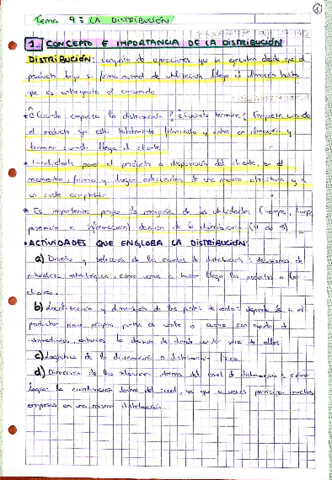 Tema 9: LA DISTRIBUCIÓN
1. CONCEPTO E IMPORTANCIA DE LA DISTRIBUCIÓN
DISTRIBUCIÓN: conjunto de operaciones que se ejecutan desde que el
producto bajo su forma normal de utilización llega al almacén hasta
que es entregado al consumidor
¿Cuándo empieza la distribución? ¿Cuándo termina? Empieza cuando
el producto ya está totalmente fabricado y entra en almacén y
termina cuando llega al cliente
poner el producto a disposición del cliente, en el
momento, forma y lugar adecuados, de una manera y a
un coste aceptable
Es importante porque la mayoría de las utilidades (tiempo, lugar,
posesión e información) de la distribución
ACTIVIDADES QUE ENGLOBA LA DISTRIBUCIÓN:
a) Diseño y selección de los canales de distribución: decisiones de
naturaleza estratégica, cómo vamos a hacer llegar los productos a los
clientes.
b) Localización y dimensión de los puntos de venta: depende de si el
productor tiene propios puntos de venta o cuenta con
entonces, la decisión de donde de ellos.
c) Logística de la distribución o distribución física.
d) Dirección de las relaciones internas del canal de distribución: cómo
lograr la dentro del canal, ya que a veces participan muchas
empresas en una misma distribución.